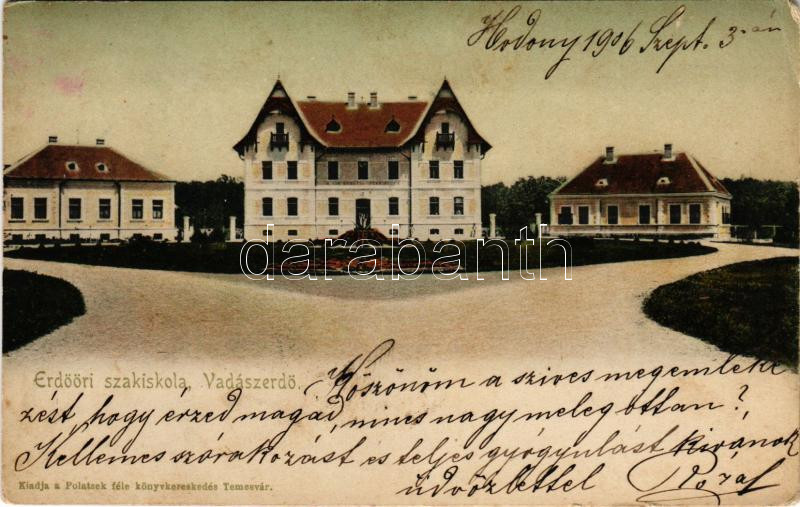 Hodony 1906 Szept. 3-án
darabanth
Erdööri szakiskola, Vadászerdö.
Köszönöm a szives megemléke
zést, hogy érzed magad, nincs nagy meleg ottan?
Kellemes szórakozást es teljes gyógyulást kivánok
üdvözlettel
Kiadja a Polatsek féle könyvkereskedés Temesvár.